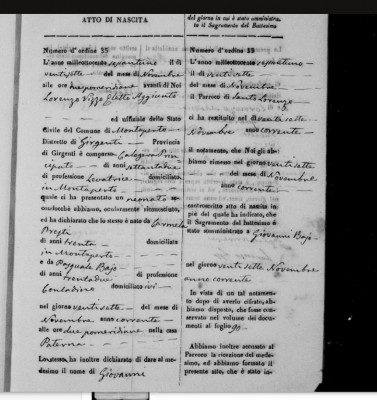 ATTO DI NASCITA
Numero d'ordine 55
L'anno milleottocento sessantuno il dì
ventisette del mese di Novembre
alle ore due pomeridiane avanti di Noi
Lorenzo Eletto Aggiunto
ed uffiziale dello Stato
Civile del Comune di Montaperto
Distretto di Girgenti Provincia
di Girgenti è comparsa Calogera
di anni
di professione Levatrice domiciliata
in Montaperto
quale ci ha presentato un neonato
secondochè abbiamo, ocularmente riconosciuto,
ed ha dichiarato che lo stesso è nato da Carmela
di anni trenta domiciliata
in Montaperto
e da Pasquale Bajo
di anni trentadue di professione
Contadino domiciliato ivi
nel giorno ventisette del mese di
Novembre anno corrente
alle ore due pomeridiane nella casa
Paterna
Lo stesso, ha inoltre dichiarato di dare al me-
desimo il nome di Giovanni
del giorno in cui è stato amministra-
to il Sagramento del Battesimo
Numero d'ordine 55
L'anno milleottocento sessantuno
il dì ventisette
del mese di Novembre
il Parroco di Santo Lorenzo
ci ha restituito nel dì ventisette
Novembre anno corrente
il notamento, che Noi gli ab-
biamo rimesso nel giorno ventisette
del mese di Novembre
anno corrente
controscritto atto di nascita in
piè del quale ha indicato, che
il Sagramento del battesimo è
stato amministrato a Giovanni Bajo
nel giorno ventisette Novembre
anno corrente
In vista di un tal notamento
dopo di averlo cifrato, ab-
biamo disposto, che fosse con-
servato nel volume dei documen-
ti al foglio
Abbiamo inoltre accusato al
Parroco la ricezione del mede-
simo, ed abbiamo formato il
presente atto, che è stato in-